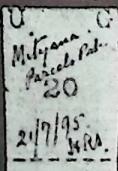 U G
Mityana
Parcels Pat.
20
21/7/95.